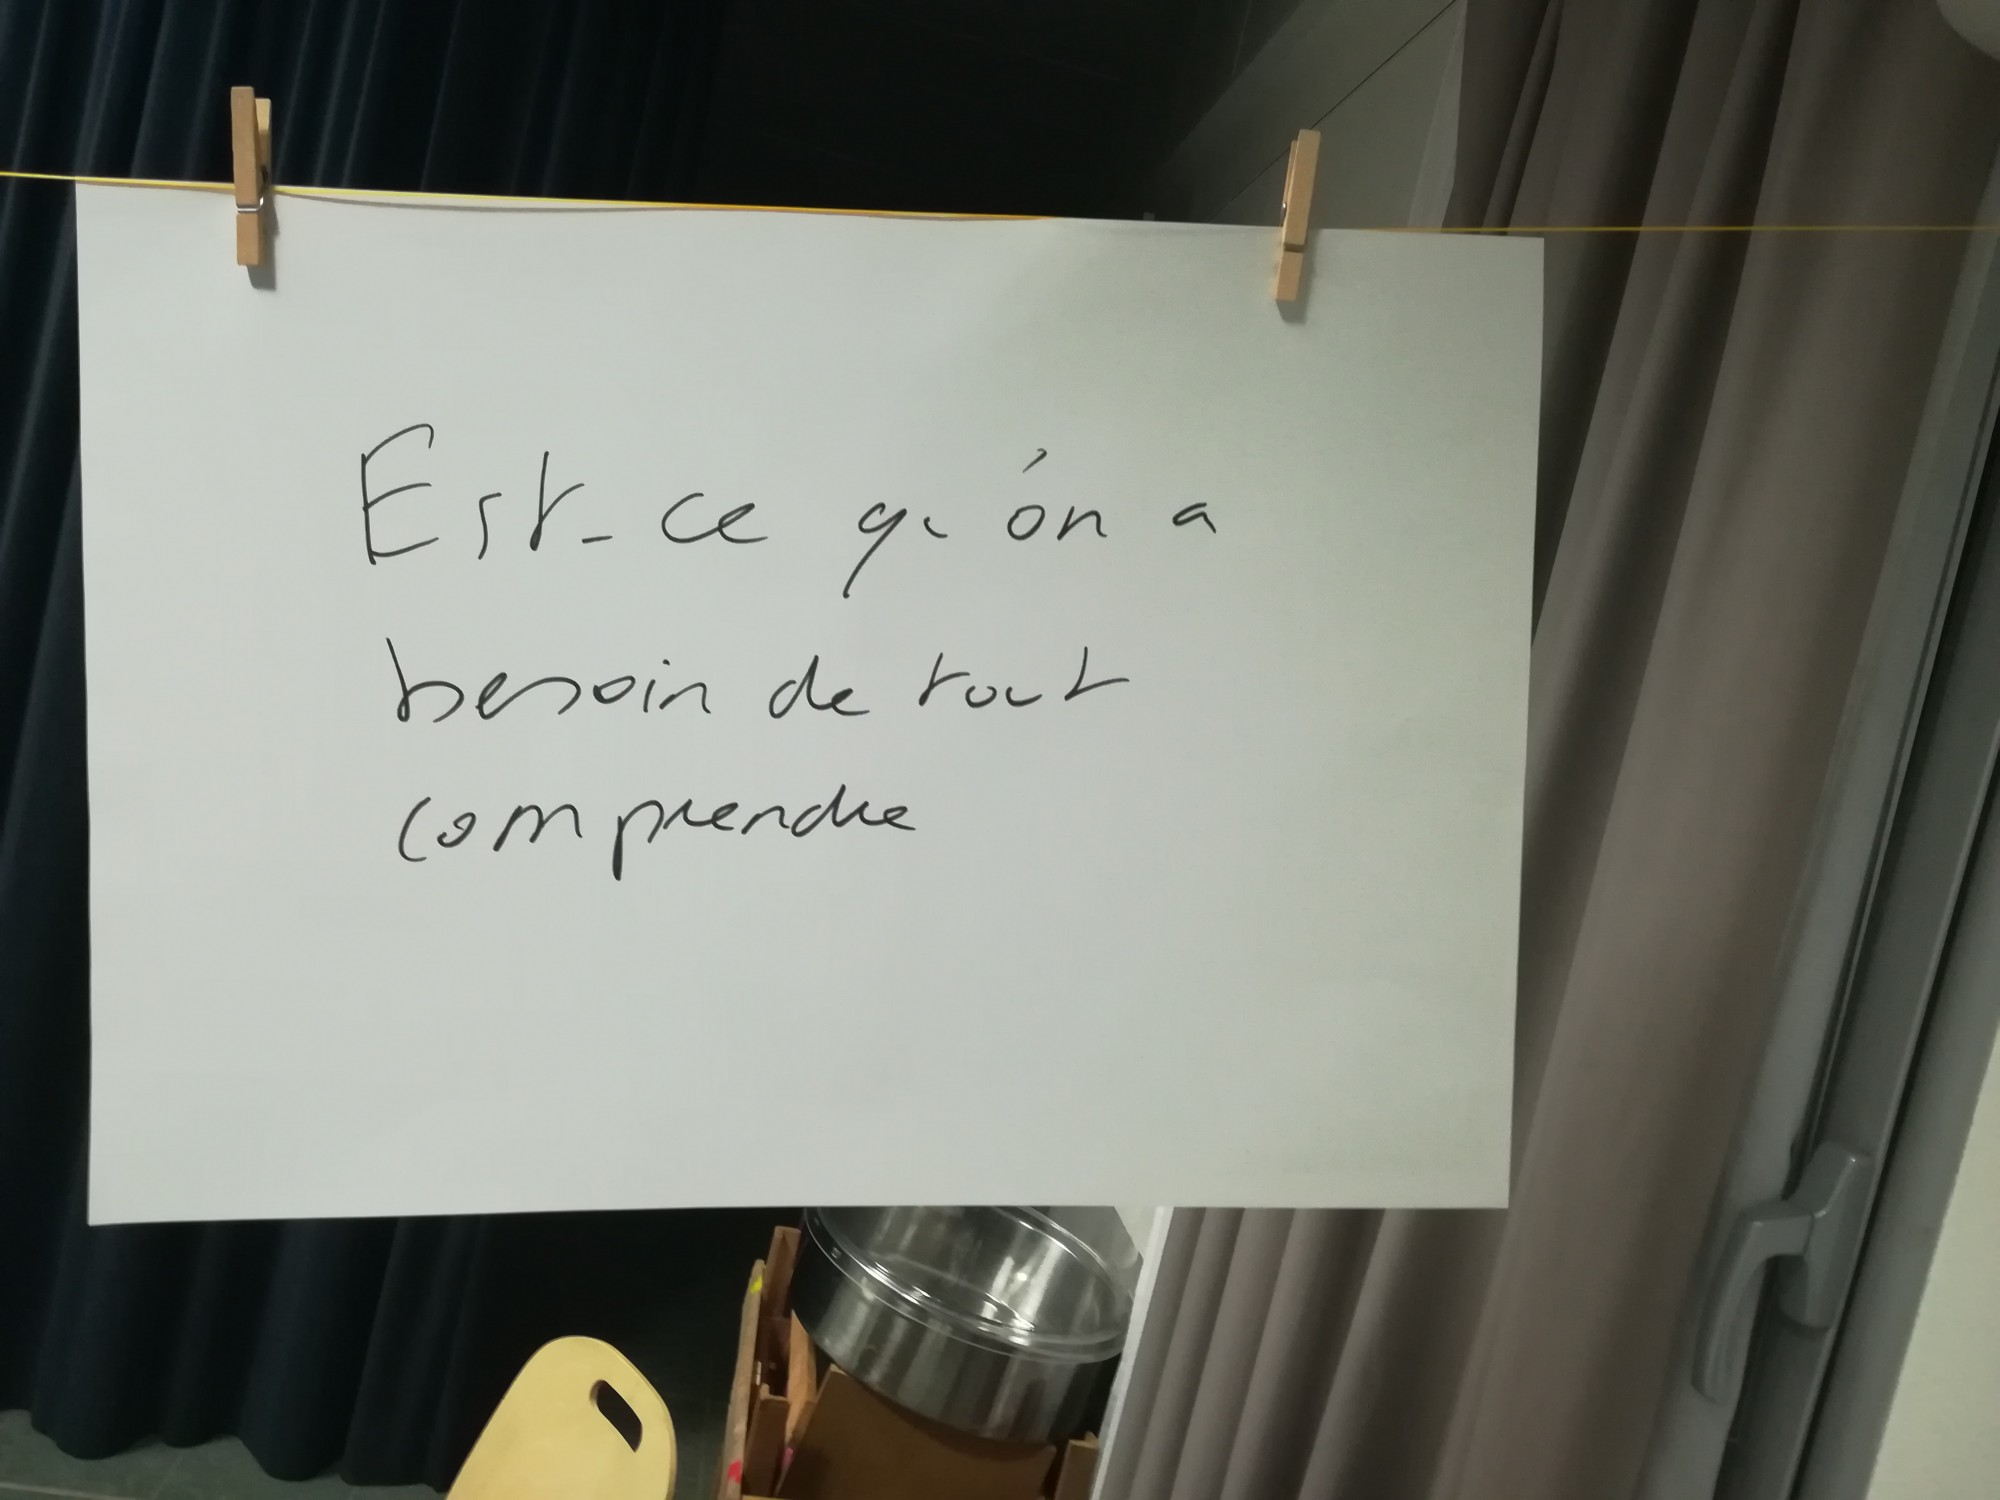 Est-ce qu'on a
besoin de tout
comprendre